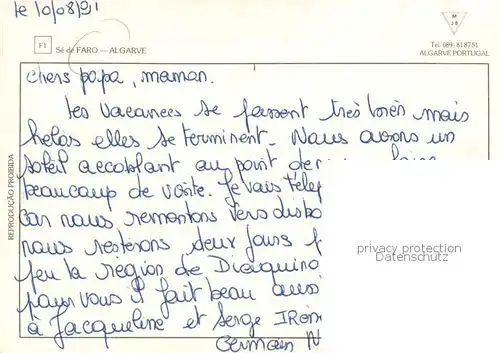 le 10/08/91
M
J B
F1
Sé de FARO — ALGARVE
Tel. 089-818751
ALGARVE PORTUGAL
chers papa, maman.
Les vacances se passent très bien mais
helas elles se terminent. Nous avons un
soleil accablant au point de
beaucoup de visite. Je vais
car nous remontons vers
nous resterons deux jours
peu la région de
pour vous il fait beau aussi
à Jacqueline et Serge
Germain
REPRODUÇÃO PROIBIDA
privacy protection
Datenschutz